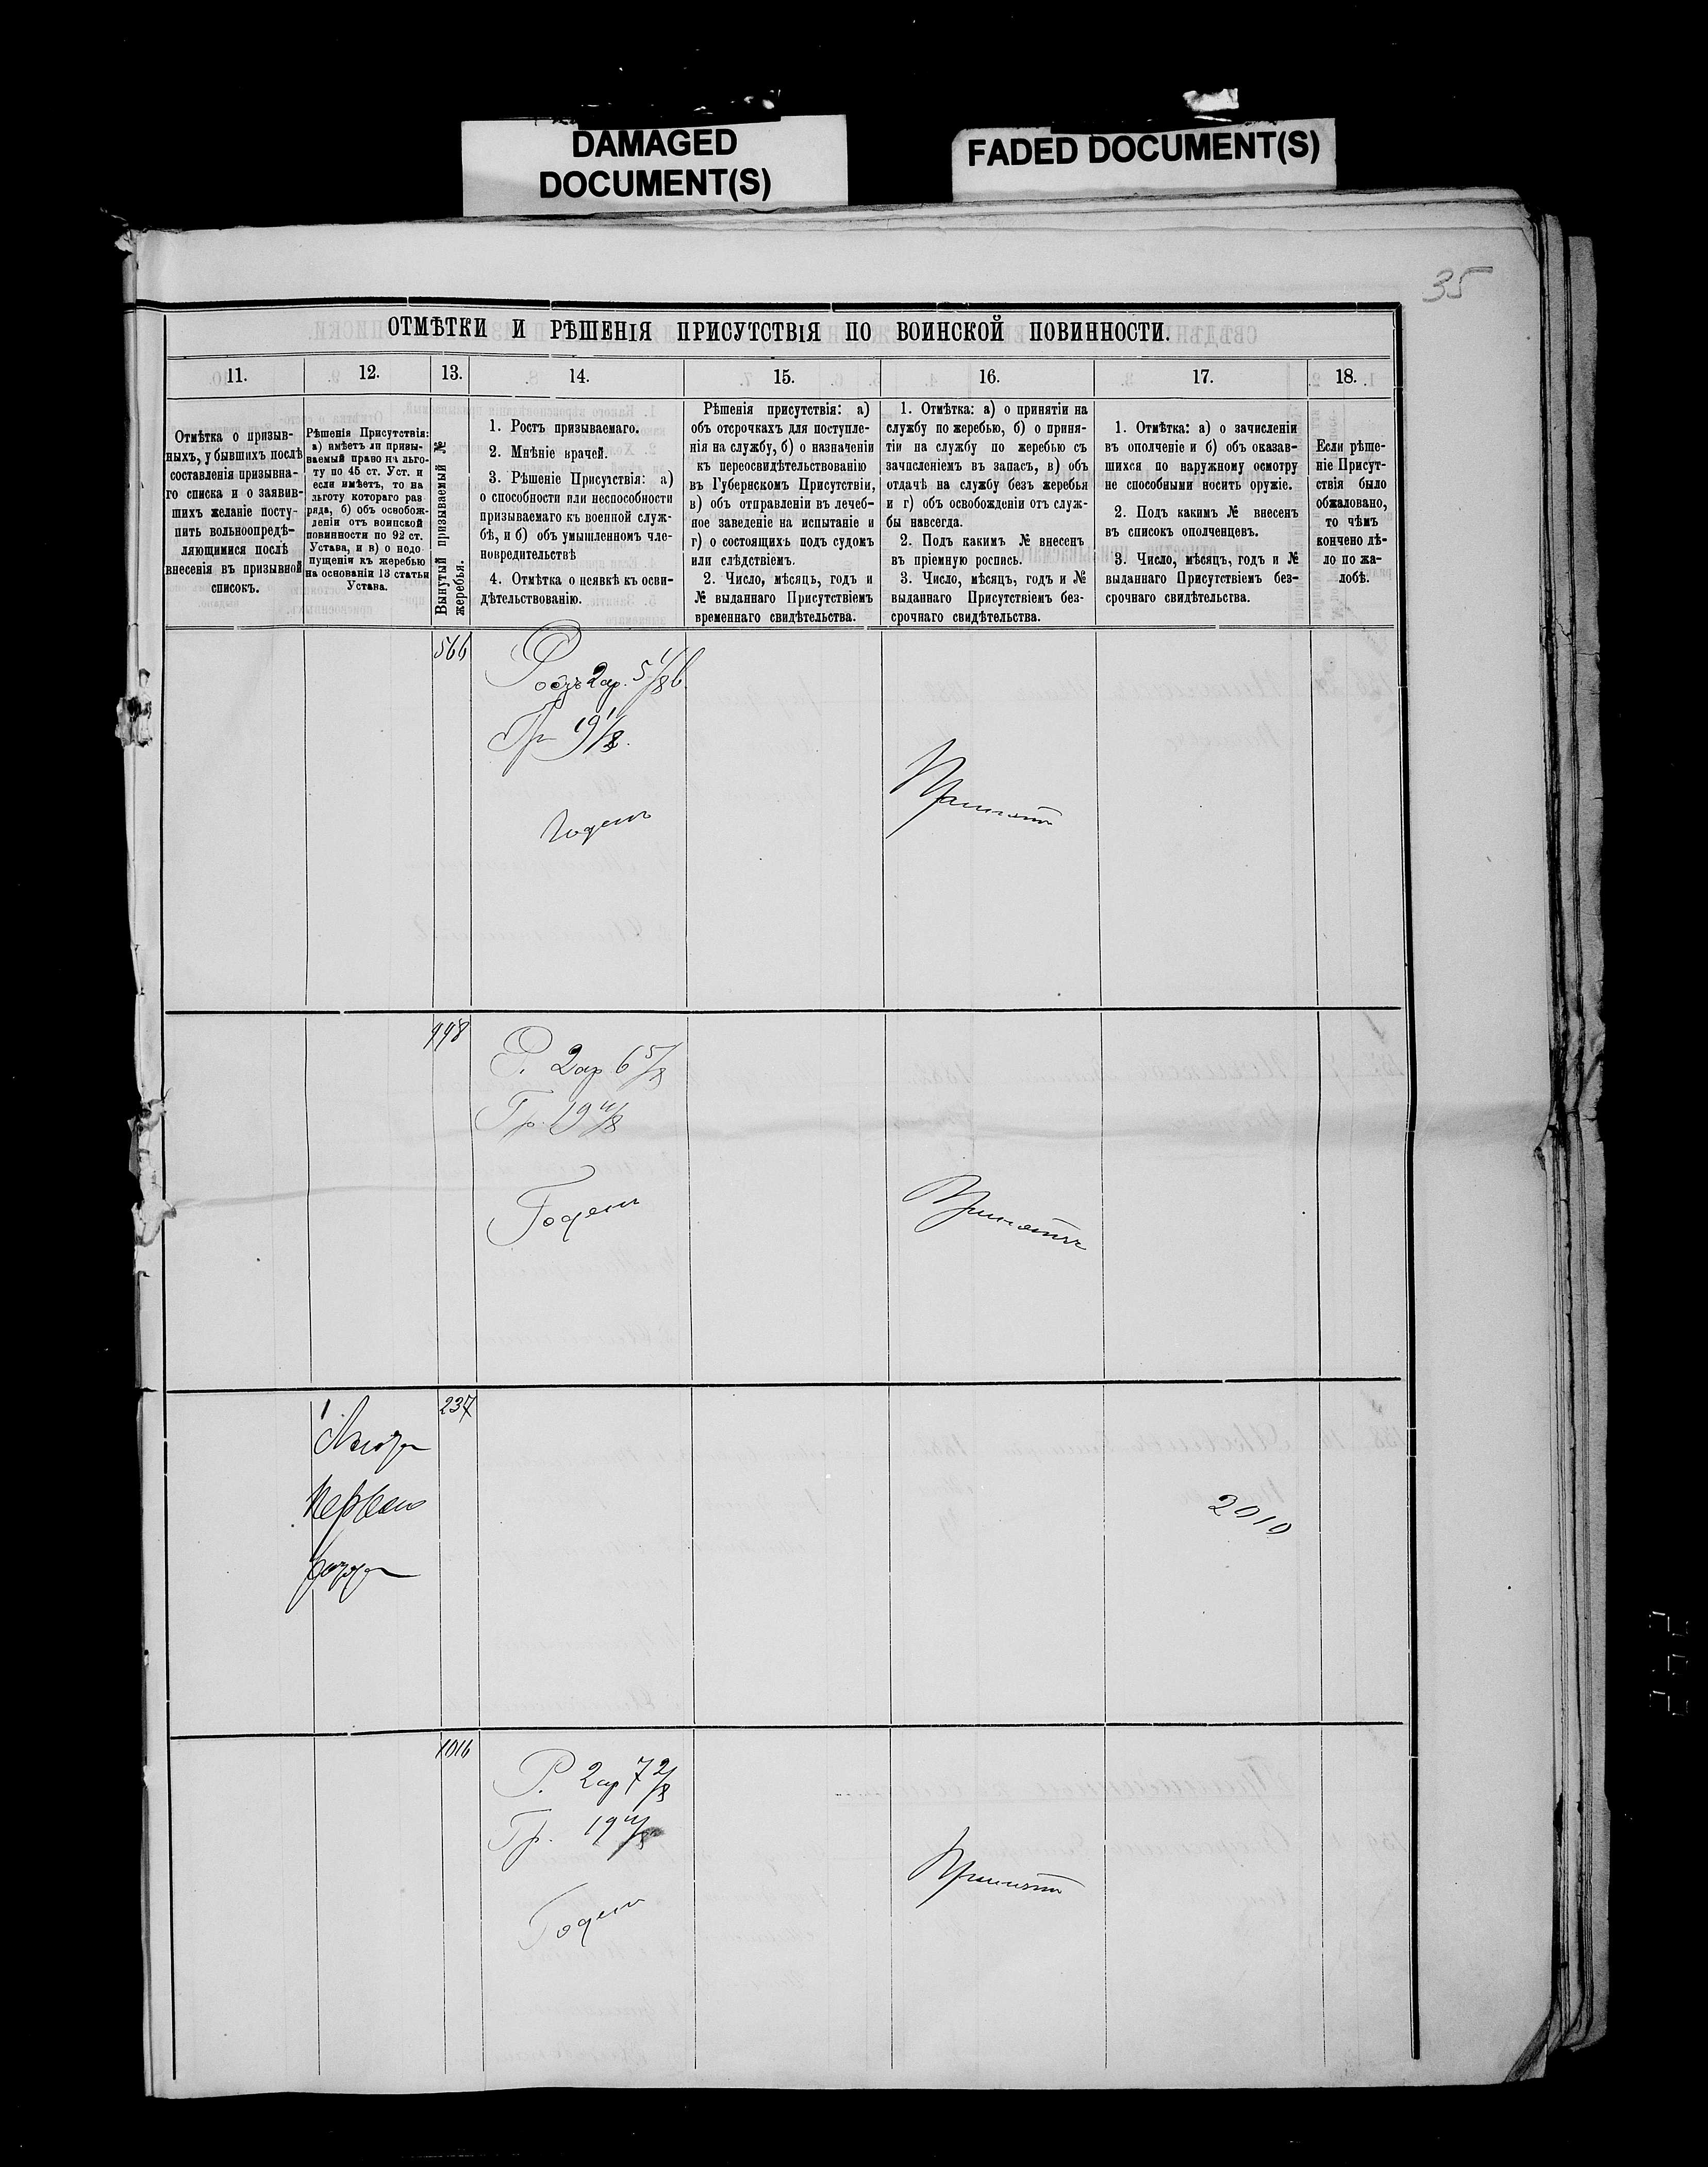 DAMAGED
DOCUMENT(S)
FADED DOCUMENT(S)
35
ОТМѢТКИ И РѢШЕНІЯ ПРИСУТСТВІЯ ПО ВОИНСКОЙ ПОВИННОСТИ.
11.
12.
13.
14.
15.
16.
17.
18.
Отмѣтка о призыв-
ныхъ, у бывшихъ послѣ
составленія призывна-
го списка и о заявив-
шихъ желаніе посту-
пить вольноопредѣ-
ляющимися послѣ
внесенія въ призывной
списокъ.
Рѣшенія Присутствія:
а) имѣетъ ли призы-
ваемый право на льго-
ту по 45 ст. Уст. и
если имѣетъ, то на
льготу котораго раз
ряда, б) объ освобож-
деніи отъ воинской
повинности по 92 ст.
Устава, и в) о недо
пущеніи къ жеребью
на основаніи 13 статьи
Устава.
Вынутый призываемый №
жеребья.
1. Ростъ призываемаго.
2. Мнѣніе врачей.
3. Рѣшеніе Присутствія: а)
о способности или неспособности
призываемаго къ военной служ-
бѣ, и б) объ умышленномъ чле-
новредительствѣ
4. Отмѣтка о неявкѣ къ осви-
дѣтельствованію.
Рѣшенія присутствія: а)
объ отсрочкахъ для поступле-
нія на службу, б) о назначеніи
къ переосвидѣтельствованію
въ Губернскомъ Присутствіи,
в) объ отправленіи въ лечеб-
ное заведеніе на испытаніе и
г) о состоящихъ подъ судомъ
или слѣдствіемъ.
2. Число, мѣсяцъ, годъ и
№ выданнаго Присутствіемъ
временнаго свидѣтельства.
1. Отмѣтка: а) о принятіи на
службу по жеребью, б) о приня-
тіи на службу по жеребью съ
зачисленіемъ въ запасъ, в) объ
отдачѣ на службу безъ жеребья
и г) объ освобожденіи отъ служ-
бы навсегда.
2. Подъ какимъ № внесенъ
въ пріемную роспись.
3. Число, мѣсяцъ, годъ и №
выданнаго Присутствіемъ без-
срочнаго свидѣтельства.
1. Отмѣтка: а) о зачисленіи
въ ополченіе и б) объ оказав-
шихся по наружному осмотру
не способными носить оружіе.
2. Подъ какимъ № внесенъ
въ списокъ ополченцевъ.
3. Число, мѣсяцъ, годъ и №
выданнаго Присутствіемъ без-
срочнаго свидѣтельства.
Если рѣше-
ніе Присут-
ствія было
обжаловано,
то чѣмъ
кончено дѣ-
ло по жа-
лобѣ.
566
2 ар. 5 1/8 в.
Гр 19 1/8.
Годенъ
Принятъ
998
Р. 2 ар 6 5/8
Гр. 19 4/8
Годенъ
Принятъ
237
Льгота
перваго
разряда
2010
1016
Р. 2 ар 7 2/8
Гр. 19 4/8
Годенъ
Принятъ